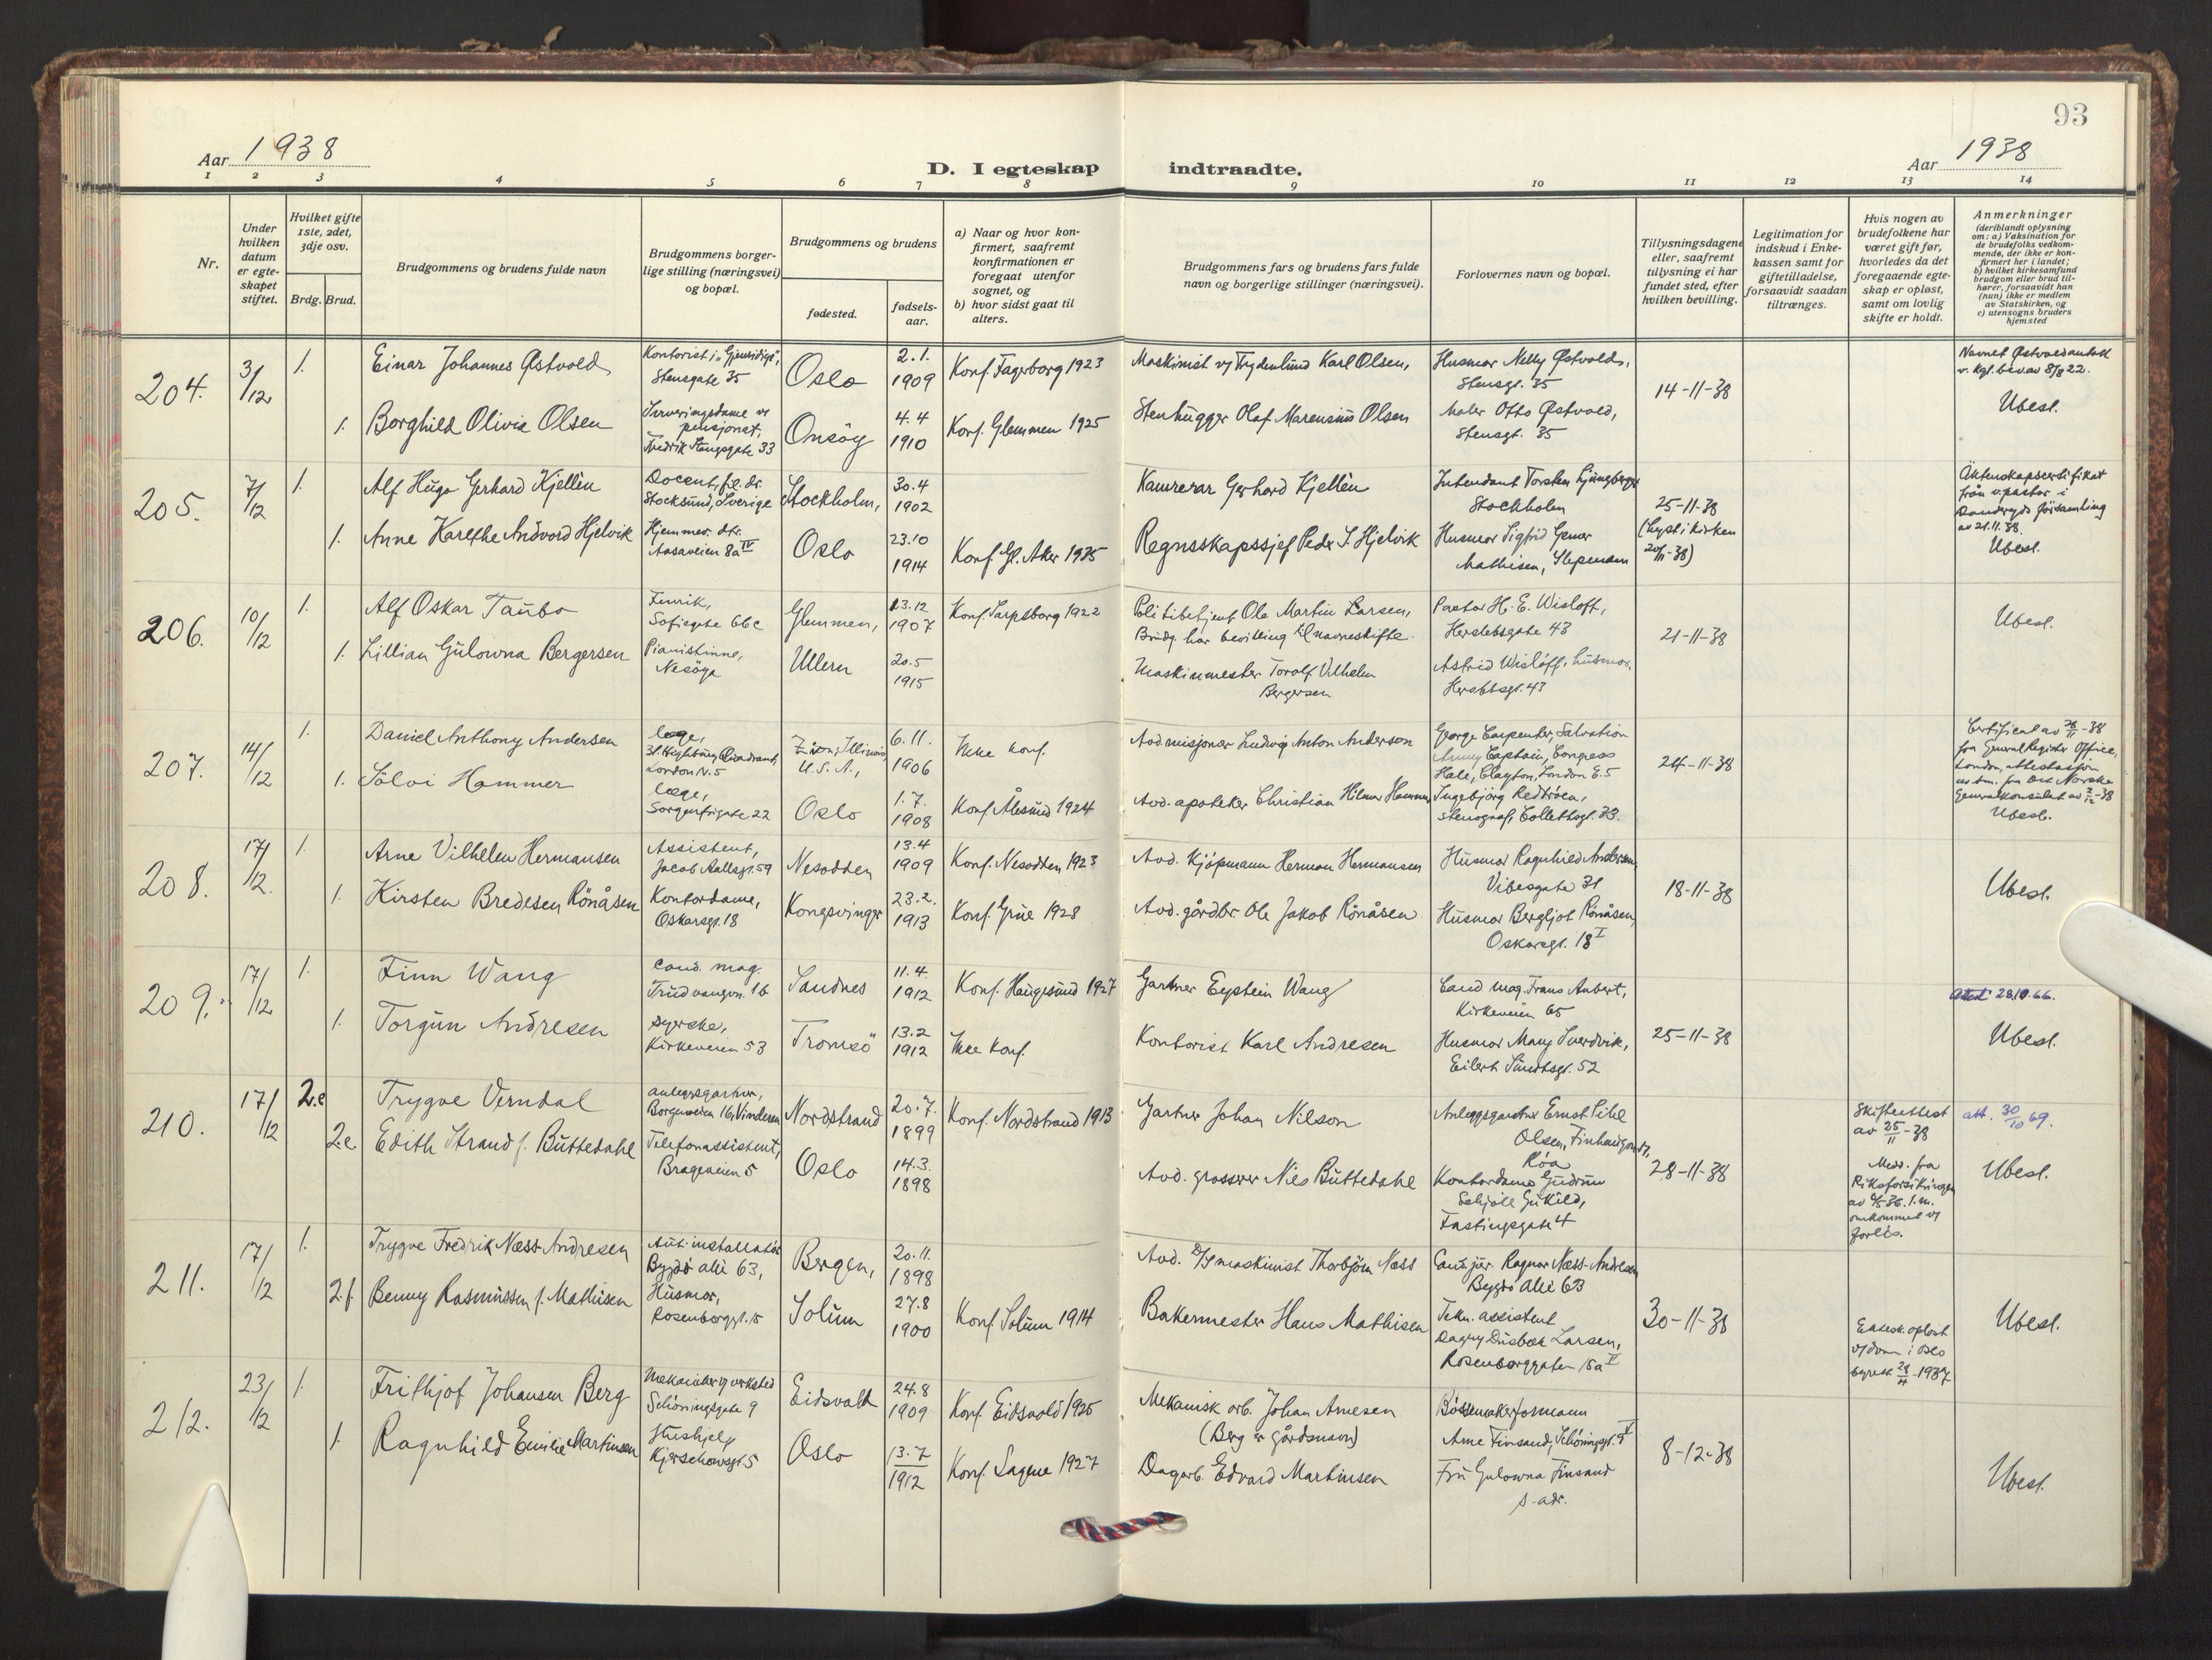 93
Aar 1938
D. I egteskap indtraadte.
Aar 1938
1 2 3 4 5 6 7 8 9 10 11 12 13 14
Nr.
Under hvilken datum er egteskapet stiftet.
Hvilket gifte 1ste, 2det, 3dje osv.
Brdg. Brud.
Brudgommens og brudens fulde navn
Brudgommens borgerlige stilling (næringsvei) og bopæl.
Brudgommens og brudens
fødested.
fødselsaar.
a) Naar og hvor konfirmert, saafremt konfirmationen er foregaat utenfor sognet, og
b) hvor sidst gaat til alters.
Brudgommens fars og brudens fars fulde navn og borgerlige stillinger (næringsvei).
Forlovernes navn og bopæl.
Tillysningsdagene eller, saafremt tillysning ei har fundet sted, efter hvilken bevilling.
Legitimation for indskud i Enkekassen samt for giftetilladelse, forsaavidt saadan tiltrænges.
Hvis nogen av brudefolkene har været gift før, hvorledes da det foregaaende egteskap er opløst, samt om lovlig skifte er holdt.
Anmerkninger (deriblandt oplysning om: a) Vaksination for de brudefolks vedkommende, der ikke er konfirmert her i landet; b) hvilket kirkesamfund brudgom eller brud tilhører, forsaavidt han (hun) ikke er medlem av Statskirken, og c) utensogns bruders hjemsted
204. 3/12 1. Einar Johannes Østvold
Kontorist i „Gjensidige",
Stensgate 35
Oslo
2.1.
1909
Konf. Fagerborg 1923
Maskinist v/ Frydenlund Karl Olsen,
Husmor Nelly Østvold,
Stensgt. 35
14-11-38
Navnet Østvold antatt
v. kgl. bev. av 8/8 22.
Ubesl.
1. Borghild Olivia Olsen
Serveringsdame v/
pensjonat,
Fredrik Stangsgate 33
Onsøy
4.4
1910
Konf. Glemmen 1925
Stenhugger Olaf Marensius Olsen
Maler Otto Østvold,
Stensgt. 35
205. 7/12 1. Alf Hugo Gerhard Kjellèn
Docent, fil. dr.
Stocksund, Sverige
Stockholm,
30.4
1902
Kamrerar Gerhard Kjellèn
Intendant Torsten Ljungberg
Stockholm
25-11-38
(Lyst i kirken
20/11-38)
Äktenskapscertifikat
från v. pastor i
Danderyds församling
av 21.11.38.
Ubesl.
1. Anne Karethe Andvord Hjelvik
Hjemmev. dtr.
Aasaveien 8a IV
Oslo
23.10
1914
Konf. Gl. Aker 1935
Regnsskapssjef Peder S. Hjelvik
Husmor Sigfrid
Mathisen, Slependen
206. 10/12 1. Alf Oskar Taubo
Fenrik,
Sofiegate 66c
Glemmen,
13.12
1907
Konf. Sarpsborg 1922
Politibetjent Ole Martin Larsen,
Brudg. har bevilling til navneskifte.
Pastor H. E. Wisløff,
Herslebsgate 43
21-11-38
Ubesl.
1. Lillian Gulowna Bergersen
Pianistinne,
Nesøya
Ullern
20.5
1915
Maskinmester Torolf Vilhelm
Bergersen
Astrid Wisløff, husmor.
Herslebsgt. 43
207. 14/12 1. Daniel Anthony Andersen
læge,
31 Highbury Quadrant,
London N.5
Zion, Illinois,
U.S.A.,
6.11.
1906
Ikke konf.
Avd. misjonær Ludvig Anton Anderson
George Carpenter, Salvation
Army Captain, Congress
Hall, Clapton, London E.5
24-11-38
Certificat av 26/11-38
fra General Register Office,
London, attestasjon
fra Det Norske
Generalkonsulat av 2/12-38
Ubesl.
1. Sölvi Hammer
læge,
Sorgenfrigate 22
Oslo
1.7.
1908
Konf. Ålesund 1924
Avd. apoteker Christian Hilmar Hammer
Ingebjörg Redtröen,
stenograf, Collettsgt. 33.
208. 17/12. 1. Arne Vilhelm Hermansen
Assistent,
Jacob Aallsgt. 59
Nesodden
13.4
1909
Konf. Nesodden 1923
Avd. Kjöpmann Herman Hermansen
Husmor Ragnhild Andersen
Vibesgate 31
18-11-38
Ubesl.
1. Kirsten Bredesen Rönåsen
Kontordame,
Oskarsgt. 18
Kongsvinger
23.2.
1913
Konf. Grue 1928
Avd. gårdbr. Ole Jakob Rönåsen
Husmor Bergljot Rönåsen,
Oskarsgt. 18 I
209. 17/12 1. Finn Wang
Cand. mag.
Trudvangvn. 16
Sandnes
11.4.
1912
Konf. Haugesund 1927
Gartner Eystein Wang
Cand mag. Frans Aubert,
Kirkeveien 65
25-11-38
Attest 28.10.66.
Ubesl.
1. Torgun Andresen
Syerske,
Kirkeveien 53
Tromsö
13.2
1912
Ikke konf.
Kontorist Karl Andresen
Husmor Mary Sverdvik,
Eilert Sundtsgt. 52
210. 17/12 2.e Trygve Verndal
anleggsgartner,
Borgenveien 16, Vinderen
Nordstrand
20.7.
1899
Konf. Nordstrand 1913
Gartner Johan Nilson
Anleggsgartner Ernst Pihl
Olsen,
Röa
28-11-38
Skifteattest
av 25/11-38
att. 30/10 69.
Ubesl.
2.e Edith Strand f. Buttedahl
Telefonassistent,
Brageveien 5
Oslo
14.3.
1898
Avd. grosserer Nils Buttedahl
Kontordame Gudrun
Fastingsgate 4
Medd. fra
Riksforsikringen
omkommet v/
forlis.
211. 17/12 1. Trygve Fredrik Næss-Andresen
Aut. installatör
Bygdö allè 63,
Bergen,
20.11.
1898
Avd. D/S maskinist Thorbjörn Næss
Cand. jur. Ragnar Næss-Andresen
Bygdö Allè 63
30-11-38
Ubesl.
2.f. Benny Rasmussen f. Mathisen
Husmor,
Rosenborggt. 15
Solum
27.8
1900
Konf. Solum 1914
Bakermester Hans Mathisen
Tekn. assistent
Dagny Dusbæk Larsen,
Rosenborggaten 15a
Ektesk. oplöst
v/ dom i Oslo
byrett 28/4 1937
212. 23/12 1. Frithjof Johansen Berg
Mekaniker v/ verksted
Schöningsgate 9
Eidsvold
24.8
1909
Konf. Eidsvold 1925
Mekanisk arb. Johan Arnesen
(Berg er gårdsnavn)
Bössemakerformann
Arne Finsand, Schöningsgt. 9 V
8-12-38
Ubesl.
1. Ragnhild Emilie Martinsen
Hushjelp
Kjerschowsgt. 5
Oslo
13.7
1912
Konf. Sagene 1927
Dagarb. Edvard Martinsen
Fru Gulowna Finsand
s. adr.